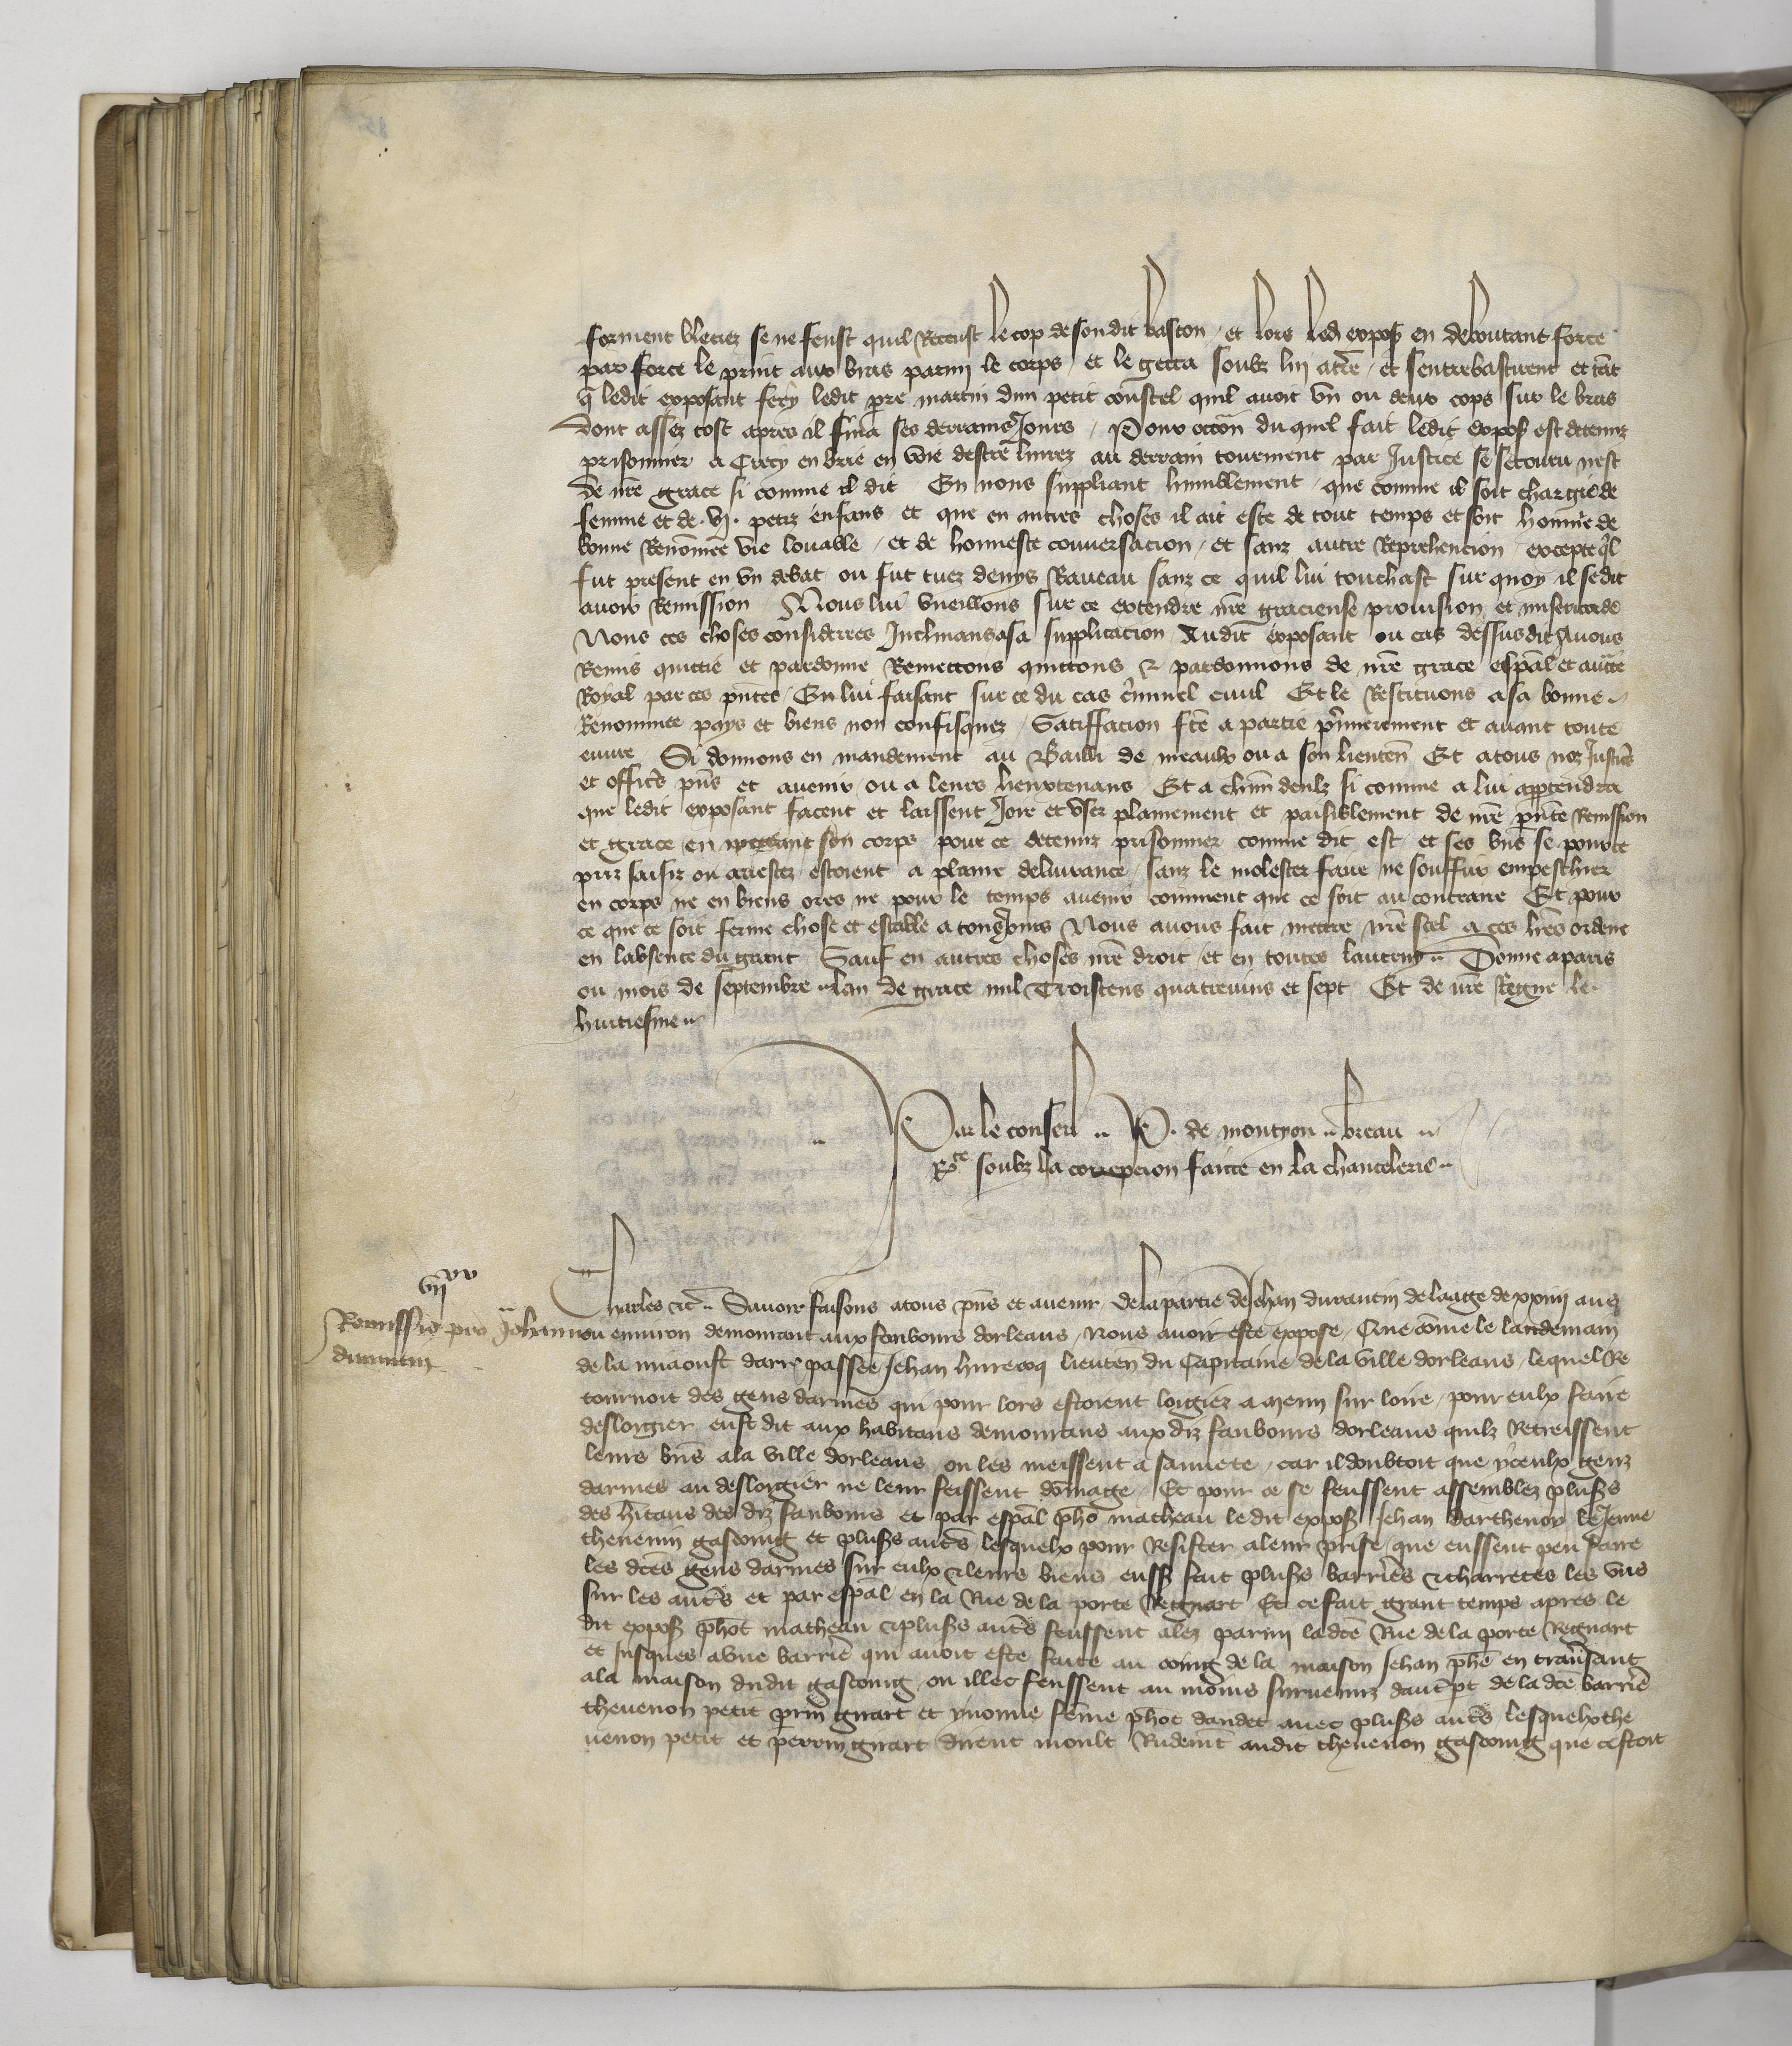 forment bleciez se ne feust quil Receust le cop de son dit baston / et lors led expos en deboutant force
par force le print aux bras parmi le corps / et le getta soubz lui a tre / et sentrebastirent et tat
q ledit exposant fery ledit pre martin dun petit coustel quil avoit un ou deux cops sur le bras
dont assez tost apres il fina ses derrains Jours / Pour occon du quel fait ledit expos est detenuz
prisonnier a Crecy en brie en voie destre livrez au derrain tourment par Justice se secouru nest
de nre grace si comme il dit En nous suppliant humblement que comme il soit chargie de
femme et de .vj. petiz enfans et que en autres choses il ait este de tout temps et soit homme de
bonne Renomee vie louable / et de honneste conversacion / et sanz autre Reprehencion / excepte ql
fut present en un debat ou fut tuez denys Raveau sanz ce quil lui touchast sur quoy il se dit
avoir Remission / Nous lui vueillons sur ce extendre nre gracieuse provision et misericorde
Nous ces choses considerees Inclinans a sa supplicacion Audit exposant ou cas dessusdit Avons
Remis quittie et pardonne Remettons quittons & pardonnons de nre grace espal et aucte
Royal par ces pntes / En lui faisant sur ce du cas criminel civil Et le Restituons a sa bonne
Renommee pays et biens non confisquez / Satiffacion fte a partie premierement et avant toute
euvre / Si donnons en mandement au Bailli de meaulx ou a son lieuten Et a tous noz Justic
et offics pns et avenir ou a leurs lieuxtenans / Et a chun deulz si comme a lui appendra
que ledit exposant facent et laissent Joir et user plainement et paisiblement de nre pnte Remission
et grace en mettant son corps pour ce detenuz prisonnier comme dit est et ses bns se pour ce
priz saisiz ou arrestez estoient a plaine delivrance / sanz le molester faire ne souffrir empeschier
en corps ne en biens ores ne pour le temps avenir comment que ce soit au contraire Et pour
ce que ce soit ferme chose et estable a tousjours Nous avons fait mettre nre scel a ces lres ordene
en labsence du grant Sauf en autres choses nre droit et en toutes lautruy Donne a paris
ou mois de septembre lan de grace mil Troiscens quatrevins et sept Et de nre Regne le
huitiesme
Par le conseil P. de montyon breau
Rte soubz la correpcion faicte en la chancelerie
vij xx
Remissio pro Johanne
durantin
Charles &c Savoir faisons a tous pns et avenir / de la partie de Jehan durantin de laage de xxiiij ans
ou environ demourant aux fauboure dorleans / Nous avoir este expose / Que come le landemain
de la miaoust darr passee Jehan hurecoq lieuten du Capitaine de la ville dorleans / lequel Re
tournoit des gens darmes qui pour lors estoient logiez a meun sur loire / pour eulx faire
deslogier eust dit aux habitans demourans aux diz fauboure dorleans quilz Retreissent
leurs bns a la ville dorleans / ou les meissent a sauvete / car il doubtoit que yceulx gens
darmes au deslogier ne leur feissent domage / Et pour ce se feussent assemblez plus
des hitans des diz fauboure et par espal phot matheau ledit expos Jehan darthenoy le Jeune
thevenin gascoing et plus auts lesquelx pour Resister a leur prise / que eussent peu faire
les dces gens darmes sur eulx & leurs biens euss fait plus barries & charretes les uns
sur les auts et par espal en la Rue de la porte Regnart Et ce fait grant temps apres le
dit expos phot matheau & plus auts feussent alez parmi ladce Rue de la porte Regnart
et Jusques a une barrie qui avoit este faite au coing de la maison Jehan phe en traversant
a la maison dudit gascoing / ou illec feussent au moins survenuz dautre pt de la dce barrie
thevenon petit perrin guart et ynome feme phot daudet avec plus auts / lesquelx the
venon petit et perrin guart dirent moult Rudemt audit thevenon gascoing que cestoit